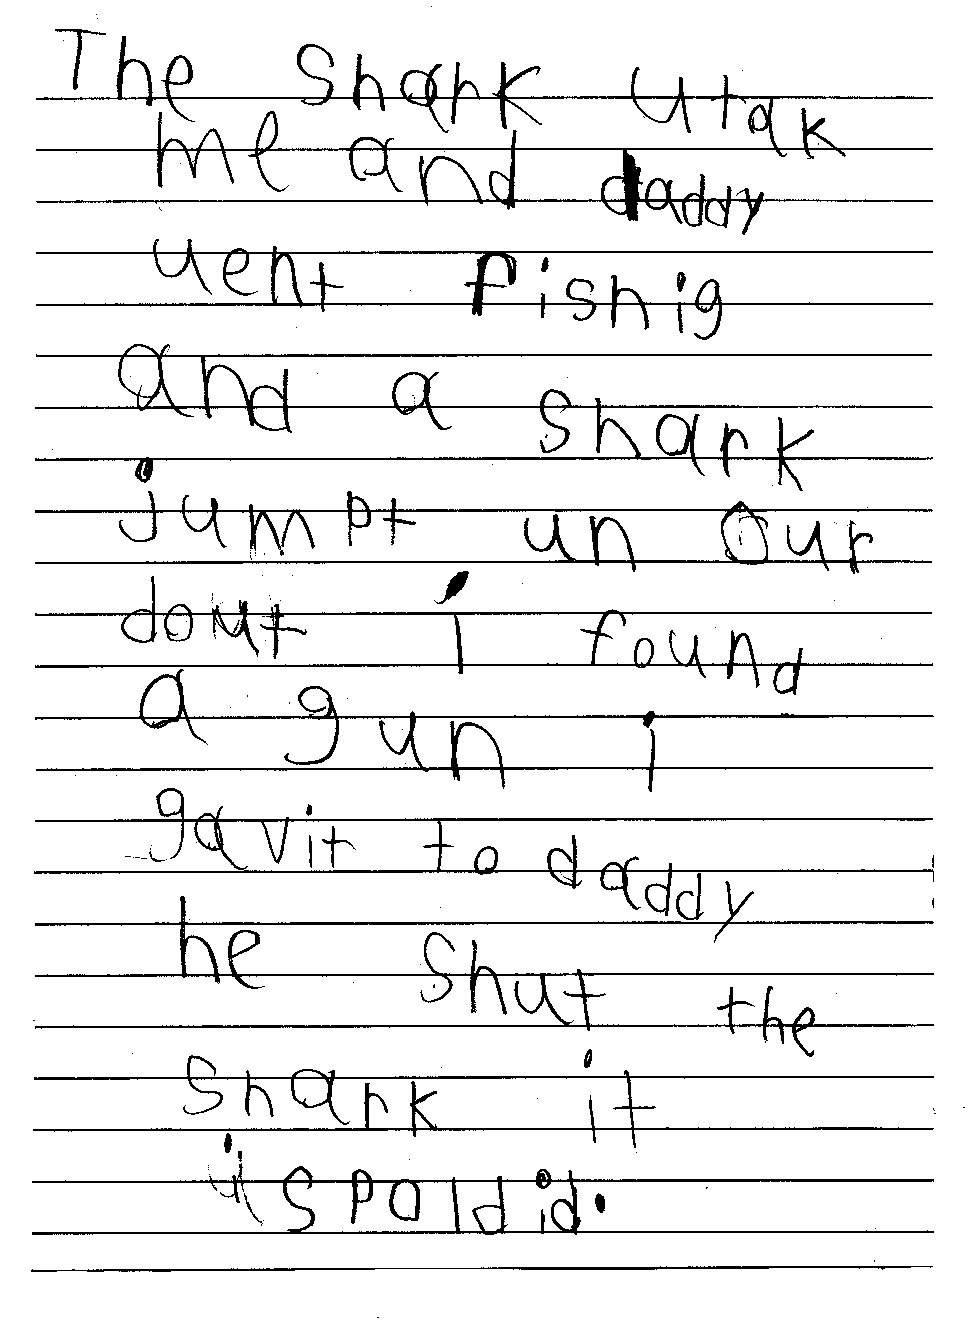 The Shark utak
me and daddy
uent fishig
and a shark
jumpt un Our
dout i found
a gun i
gavit to daddy
he Shut the
Shark it
ispaldid.